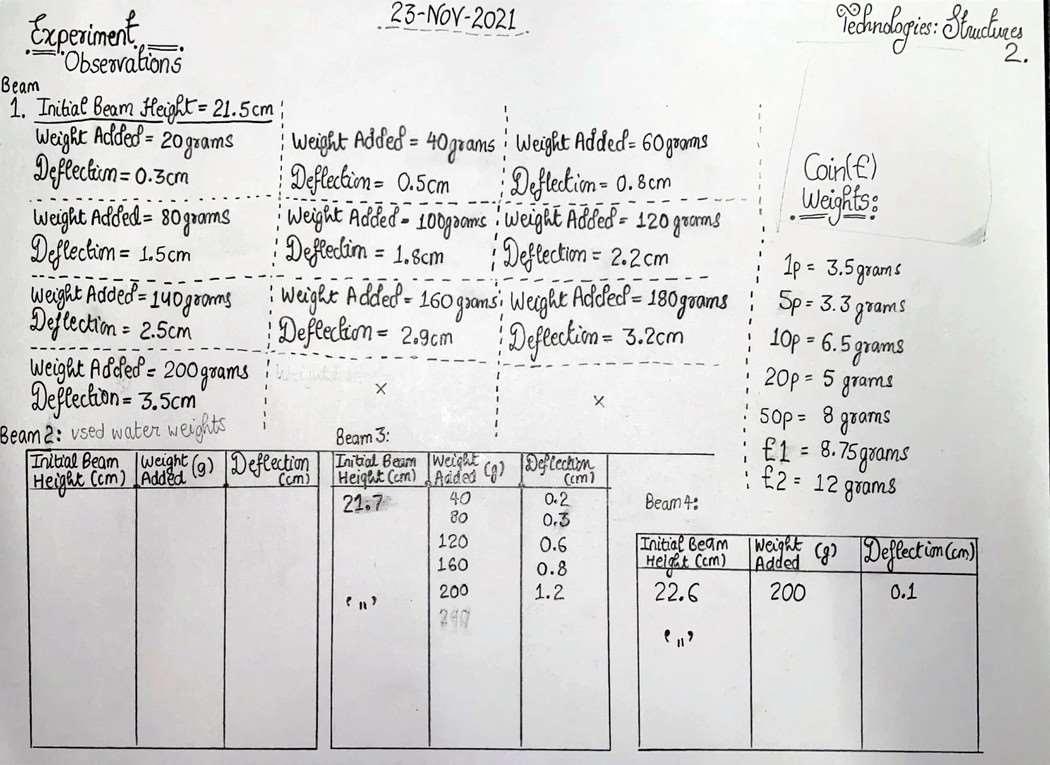 23-NOV-2021
Experiment
Observations
Technologies: Structures
2.
Beam
1. Initial Beam Height = 21.5cm
Weight Added = 20grams
Deflection = 0.3cm
Weight Added = 40grams
Deflection = 0.5cm
Weight Added = 60grams
Deflection = 0.8cm
Weight Added = 80grams
Deflection = 1.5cm
Weight Added = 100grams
Deflection = 1.8cm
Weight Added = 120grams
Deflection = 2.2cm
Weight Added = 140grams
Deflection = 2.5cm
Weight Added = 160grams
Deflection = 2.9cm
Weight Added = 180grams
Deflection = 3.2cm
Weight Added = 200grams
Deflection = 3.5cm
x
x
Coin(£)
Weights:
1p = 3.5grams
5p = 3.3 grams
10p = 6.5 grams
20p = 5 grams
50p = 8 grams
£1 = 8.75grams
£2 = 12 grams
Beam 2: used water weights
Initial Beam Height (cm) Weight (g) Added Deflection (cm)
Beam 3:
Initial Beam Height (cm) Weight Added (g) Deflection (cm)
21.7 40 0.2
80 0.3
120 0.6
160 0.8
" 200 1.2
Beam 4:
Initial Beam Height (cm) Weight Added (g) Deflection (cm)
22.6 200 0.1
"